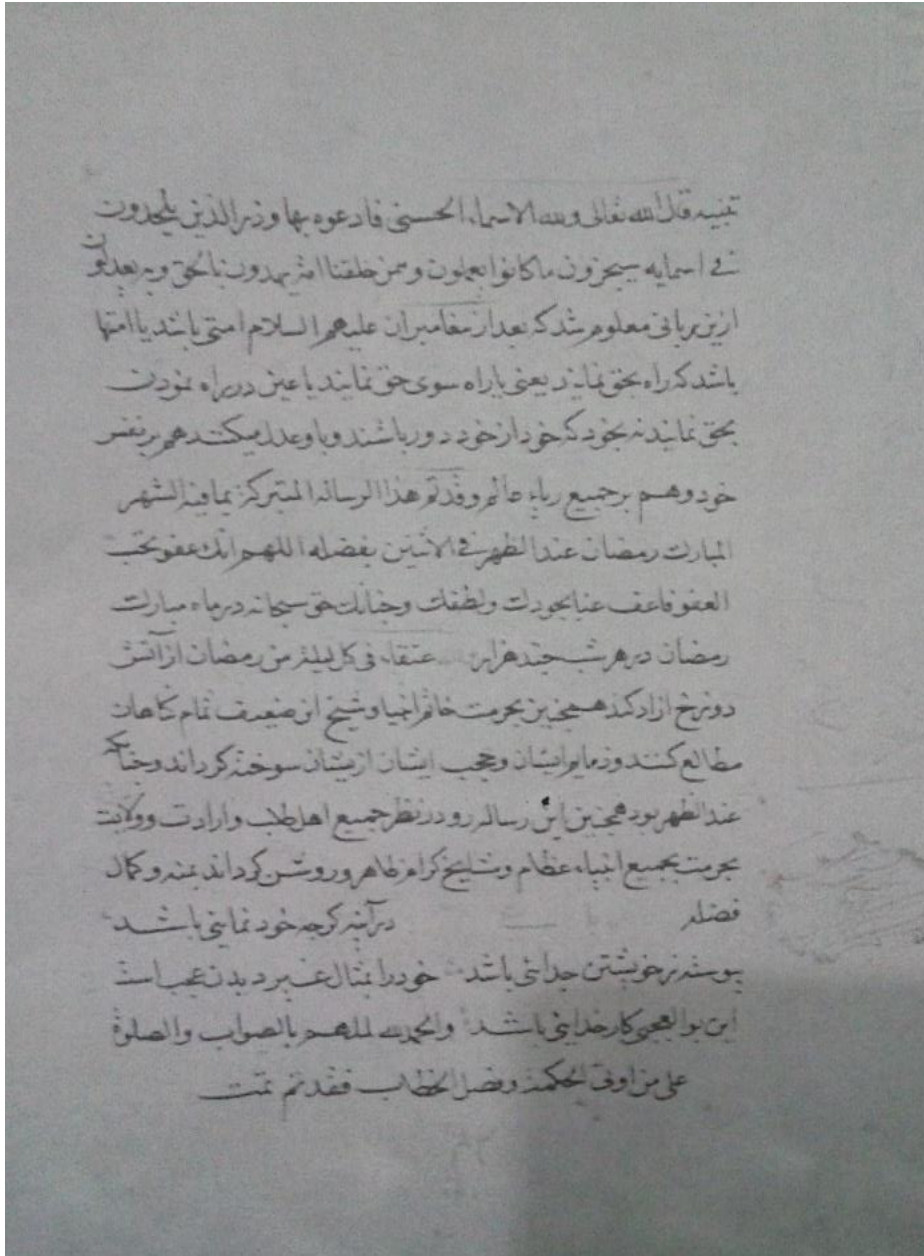 تنبیه قال الله تعالی ولله الاسماء الحسنی فادعوه بها وذر الذین یلحدون
فی اسمایه سیجزون ما کانوا یعملون وممن خلقنا امة یهدون بالحق وبه یعدلون
ازین ربانی معلوم شد که بعد از پیغامبران علیهم السلام امتی باشد یا امتها
باشد که راه بحق نمایند یعنی یا راه سوی حق نمایند یا عین در راه نمودن
بحق نمایند نه بخود که خود از خود دور باشند وباو عدل میکنند هم بر نفس
خود وهم بر جمیع عالم وقد تم هذا الرساله المتبرکة الشهر
المبارک رمضان عند الظهر فی الاثنین بفضله اللهم انک عفو تحب
العفو فاعف عنا بجودک ولطفک حق سبحانه در ماه مبارک
رمضان در هر شب چند هزار عتقاء فی کل لیلة من رمضان از آتش
دوزخ ازاد کند همچنین بحرمت خاتم انبیا وشیخ این ضعیف تمام
کنند وحجب ایشان ازیشان سوخته کرداند وچنانکه
عند الظهر بود همچنین این رساله رو در نظر جمیع اهل طلب وارادت وولایت
بحرمت جمیع انبیاء عظام ومشایخ کرام ظاهر وروشن کرداند بمنه وکمال
فضله در آینه کرچه خود نمایی باشد
پیوسته ز خویشتن جدایی باشد خود را بمثال غیر دیدن عجب است
این بو العجبی کار خدایی باشد والحمد لله لملهم بالصواب والصلوة
علی من اوتی الحکمة وفصل الخطاب فقد تم تمت